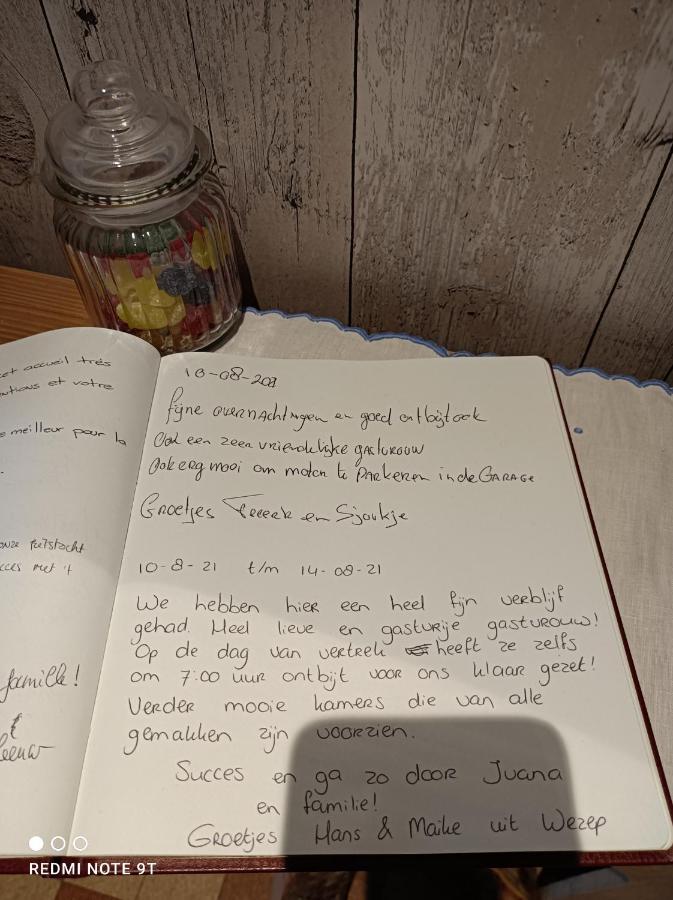 et accueil très
et votre
meilleur pour la
onze fietstocht
met 't
famille!
10-08-2021
fijne overnachtingen en goed ontbijt ook
Ook een zeer vriendelijke gastvrouw
Ook erg mooi om moten te PARKEREN in de GARAGE
Groetjes en Sjoukje
10-8-21 t/m 14-08-21
We hebben hier een heel fijn verblijf
gehad. Heel lieve en gastvrije gastvrouw!
Op de dag van vertrek heeft ze zelfs
om 7:00 uur ontbijt voor ons klaar gezet!
Verder mooie kamers die van alle
gemakken zijn voorzien.
Succes en ga zo door Juana
en familie!
Groetjes Hans & Maike uit Wezep
REDMI NOTE 9T